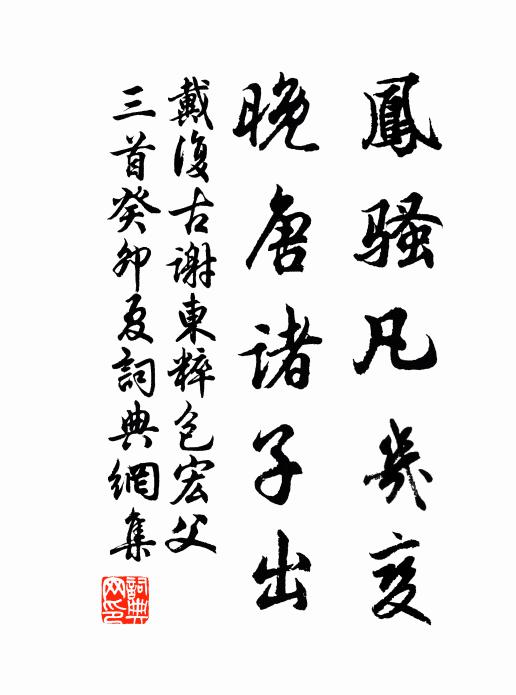 鳳騷凡幾變
晚唐諸子出
戴復古謝東粹包宏父
三首癸卯夏詞典網集
詞典网印